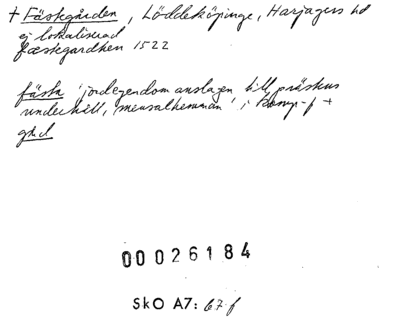 + Fästegården, Löddeköpinge, Harjagers hd
ej lokaliserad
fæstegardhen 1522
fästa 'jordegendom anslagen till prästens
underhåll, mensalhemman' i komp-f +
gård
00026184
SkO A7: 67 f